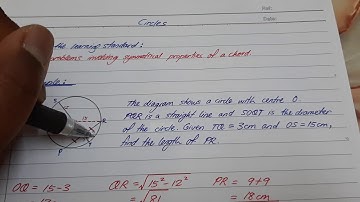 Ref:
Date:
Circles
the learning standard:
problems involving symmetrical properties of a chord.
The diagram shows a circle with centre O.
PQR is a straight line and SOQT is the diameter
of the circle. Given TQ = 3cm and OS = 15cm,
find the length of PR.
S
15
R
P
OQ = 15-3
QR = √15² - 12²
PR = 9+9
= √81
= 18cm